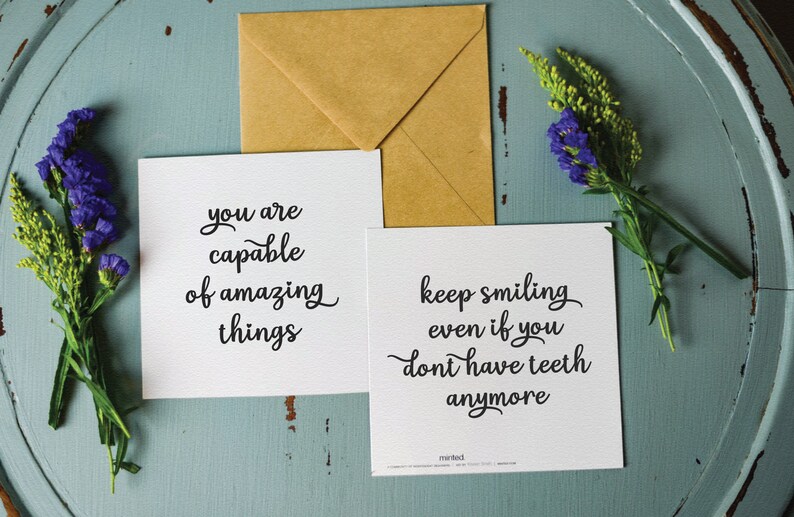 you are
capable
of amazing
things
keep smiling
even if you
dont have teeth
anymore
minted.